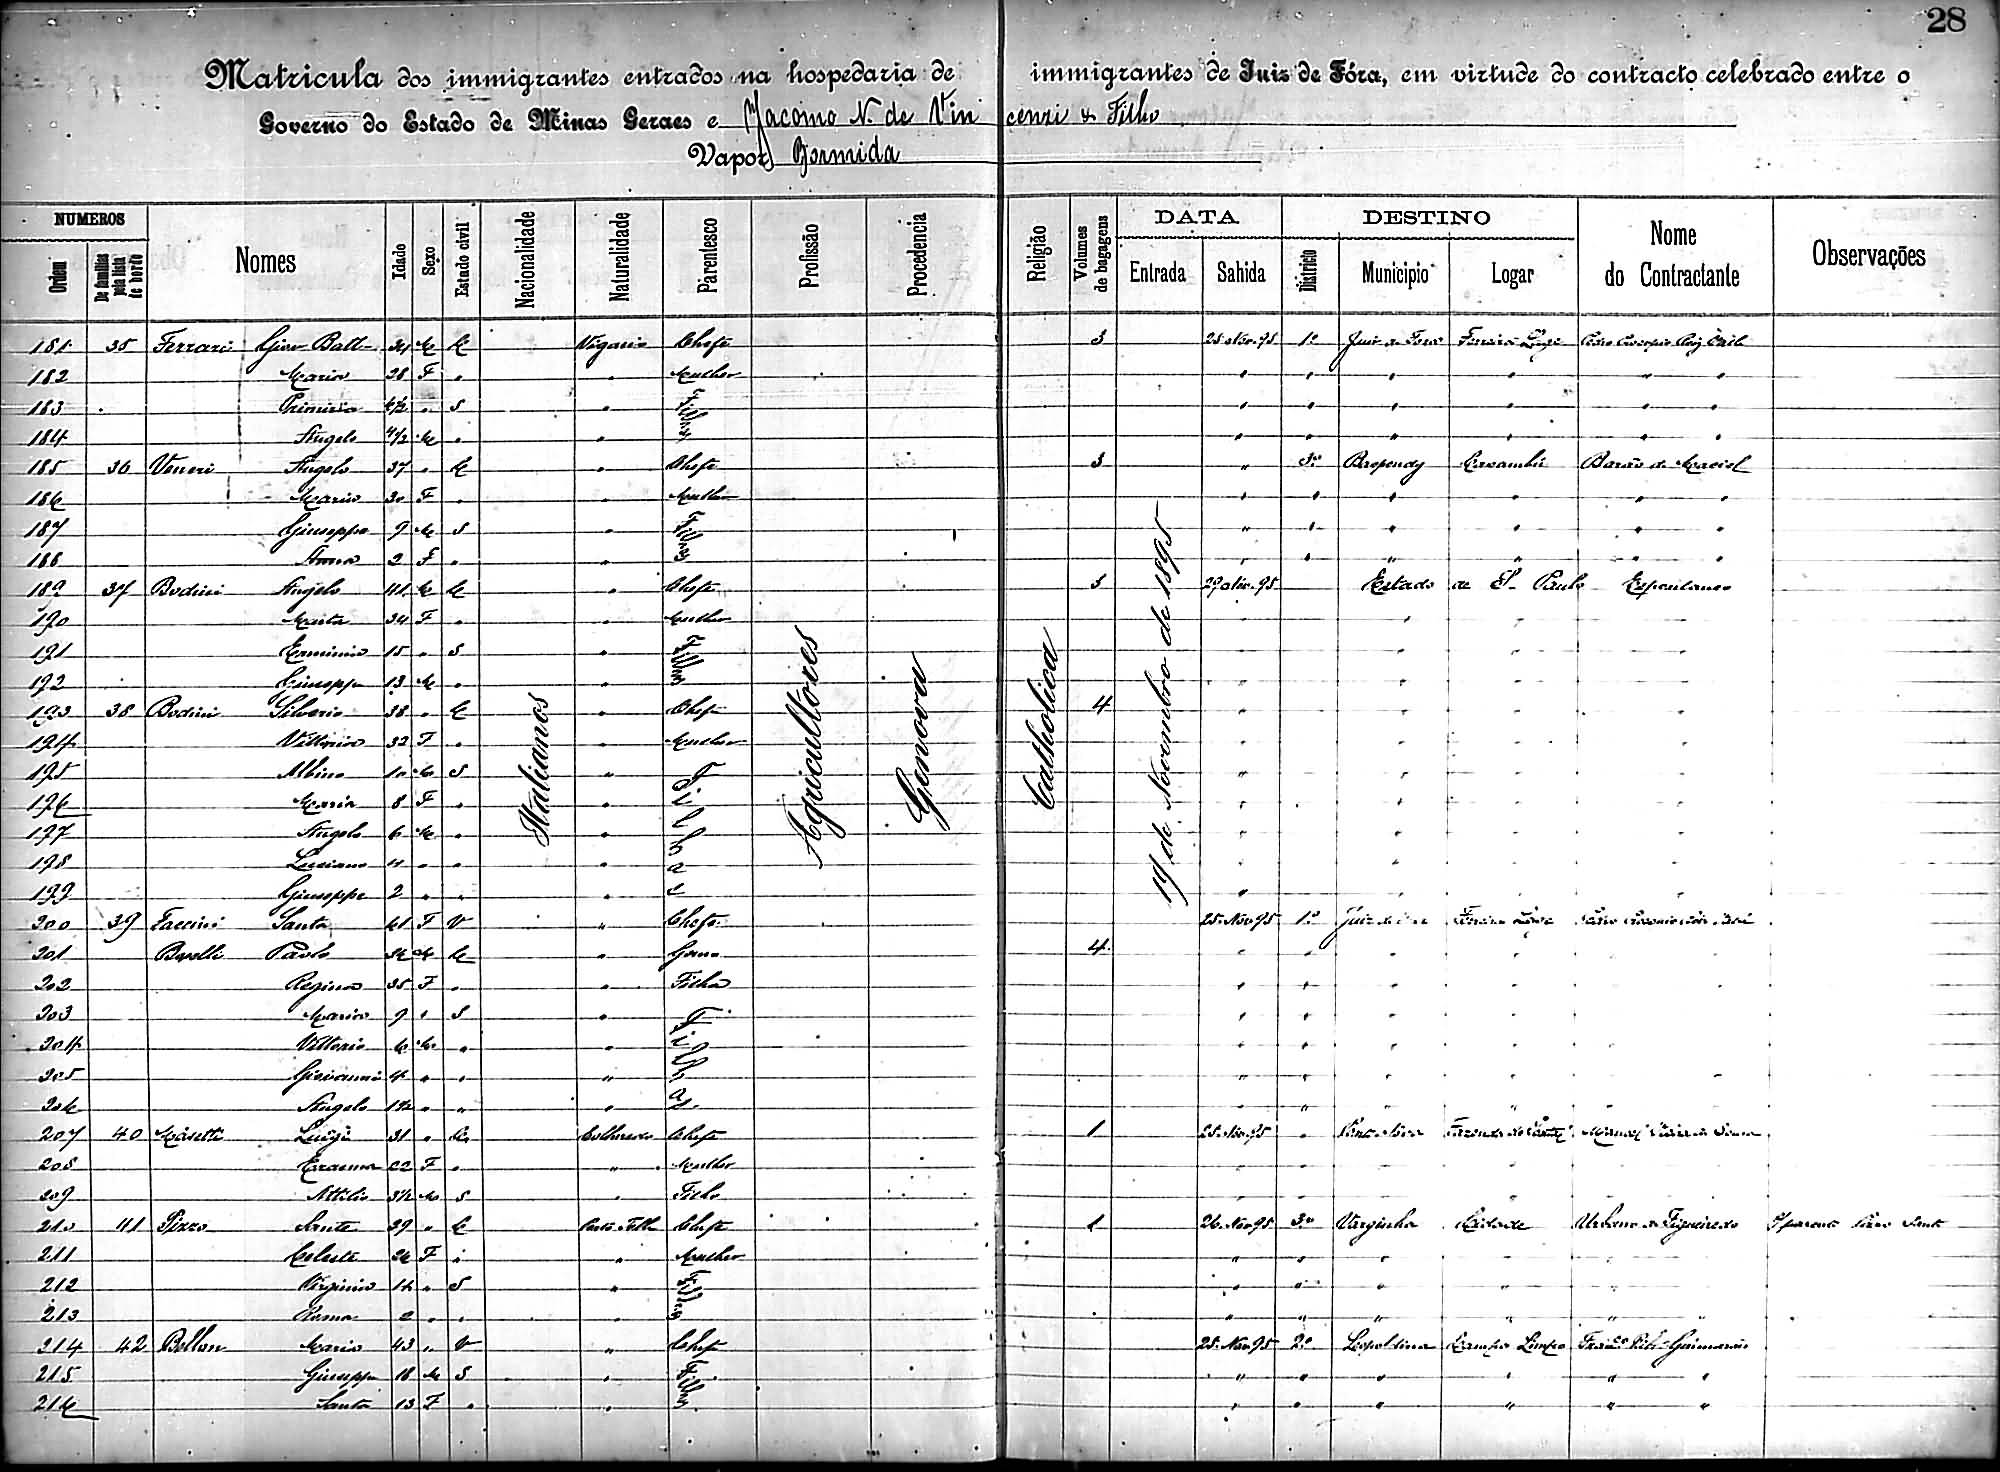 28
Matricula dos immigrantes entrados na hospedaria de immigrantes de Juiz de Fóra, em virtude do contracto celebrado entre o
Governo do Estado de Minas Geraes e Jacomo N. de Vincenzi & Filho
Vapor Bormida
NUMEROS
DATA DESTINO
Ordem De familias pela lista de bordo Nomes Idade Sexo Estado civil Nacionalidade Naturalidade Parentesco Profissão Procedencia Religião Volumes de bagagens Entrada Sahida Districto Municipio Logar Nome do Contractante Observações
Italianos Agricultores Genova Catholica 19 de Novembro de 1895
181 35 Ferrari Giov. Batt. 34 M C Vigasio Chefe 3 25 Nov. 95 1º Juiz de Fora
182 Maria 28 F " " Mulher " " " " " "
183 " S " Filhos " " " " " "
184 Angelo M " " " " " " " "
185 36 Veneri Angelo 37 " C " Chefe 3 " 3º Baependy Caxambú Barão de Maciel
186 Maria 30 F " " Mulher " " " " " "
187 Giuseppe 9 M S " Filhos " " " " " "
188 Anna 2 F " " " " " " " "
189 37 Bodini Angelo 41 M C " Chefe 3 29 Nov. 95 Estado de S. Paulo Espontaneo
190 Marta 34 F " " Mulher " " " "
191 Erminia 15 " S " Filhos " " " "
192 Giuseppe 13 M " " " " " "
193 38 Bodini Silverio 38 " C " Chefe 4 " " " "
194 Vittoria 32 F " " Mulher " " " "
195 Albino 10 M S " Filhos " " " "
196 Maria 8 F " " " " " "
197 Angelo 6 M " " " " " "
198 Luciano 4 " " " " " " "
199 Giuseppe 2 " " " " " " "
200 39 Faccini Santa 61 F V " Chefe 25 Nov. 95 1º Juiz de Fora
201 Paolo M C " Genro 4 " " " " "
202 Regina 35 F " " Filha " " " " "
203 Maria 9 " S " Filhos " " " " "
204 Vittorio 6 M " " " " " " "
205 Giovanni 4 " " " " " " "
206 Angelo " " " " " " "
207 40 Masetti Luigi 31 " C Chefe 1 25 Nov. 95 " Ponte Nova
208 22 F " " Mulher " " " " "
209 Attilio M S " Filho " " " " "
210 41 Pizzo Sante 39 " C Chefe 1 26 Nov. 95 3º Varginha Cidade Urbano de Figueiredo
211 Celeste 26 F " " Mulher " " " " "
212 Virginia " S " Filhos " " " " "
213 Roma 2 " " " " " " "
214 42 Bellon Maria 43 " V " Chefe 25 Nov. 95 2º Leopoldina Campo Limpo Guimarães
215 Giuseppe 18 M S " Filhos " " " " " "
216 Santa 13 F " " " " " " " "